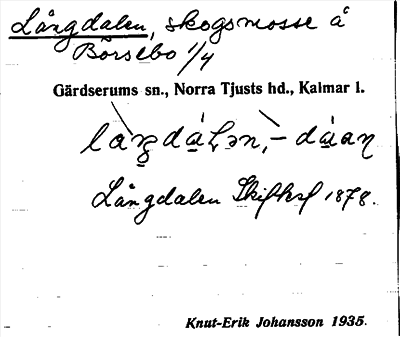 Långdalen, skogsmosse å
Börsebo 1/4
Gärdserums sn., Norra Tjusts hd., Kalmar l.
Långdalen 1878.
Knut-Erik Johansson 1935.